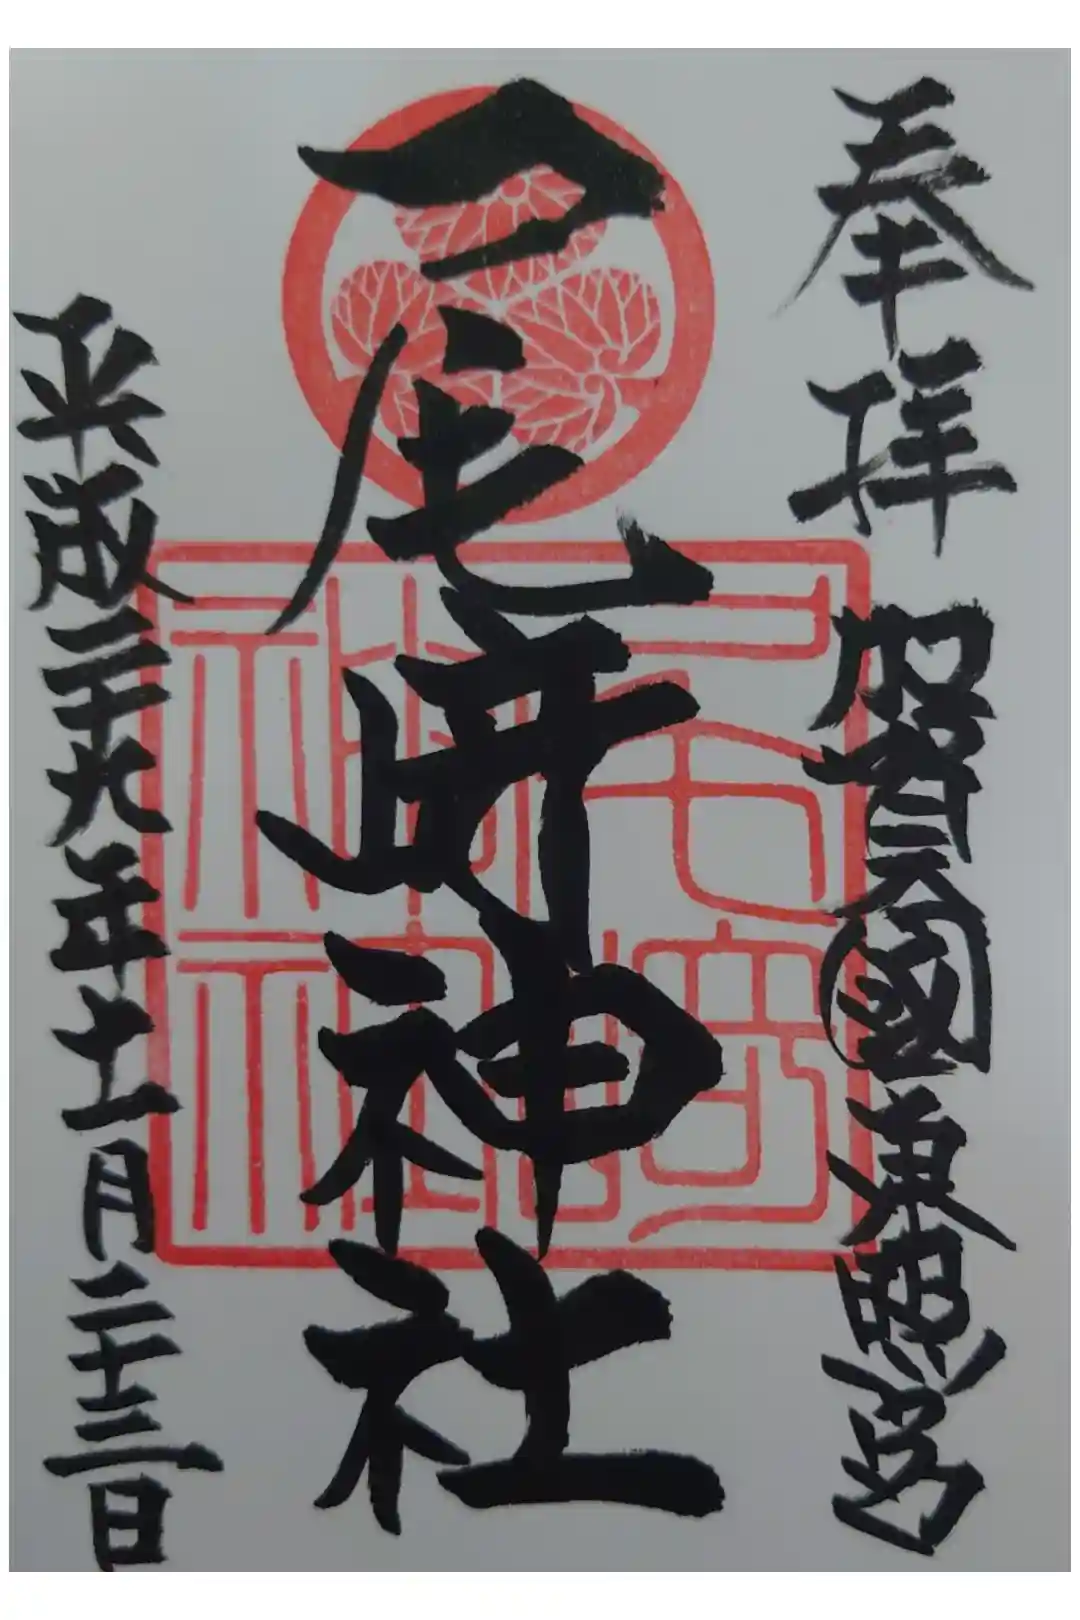 奉拝 加賀國東照宮
尾崎神社
平成二十九年十一月二十三日
尾崎神社